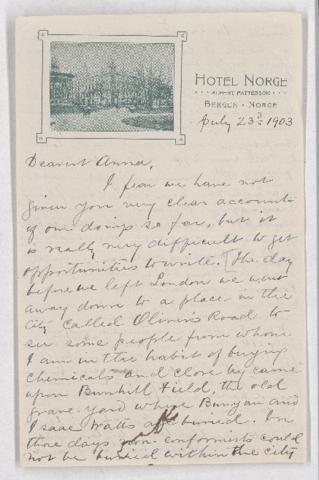 HOTEL NORGE
ALBERT PATTERSON
BERGEN · NORGE
July 23d 1903
Dearest Anna,
I fear we have not
given you very clear accounts
of our doings so far, but it
is really very difficult to get
opportunities to write. [The day
before we left London we went
away down to a place in the
City called Oliver's Road to
see some people from whom
I am in the habit of buying
chemicals and close by came
upon Bunhill Field, the old
grave-yard where Bunyan and
Isaac Watts are buried. In
those days non-conformists could
not be buried within the city